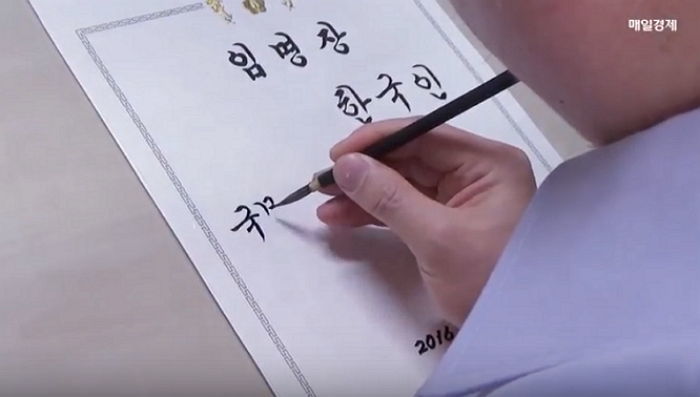 매일경제
임명장
한국인
국
2016